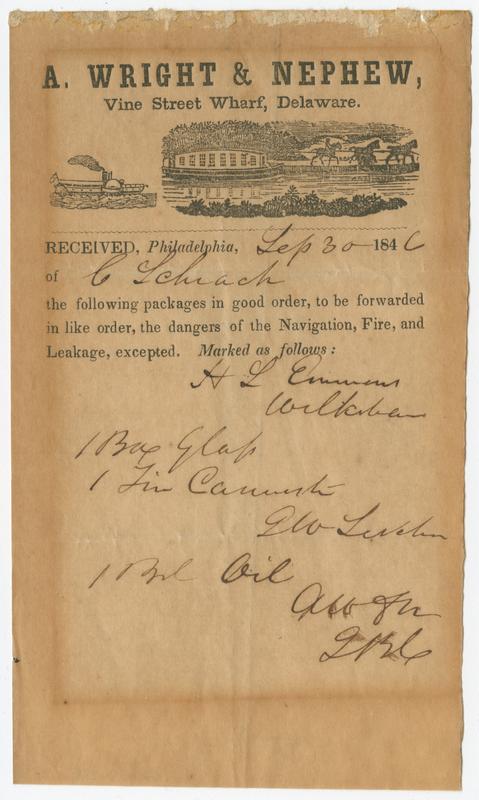 A. WRIGHT & NEPHEW,
Vine Street Wharf, Delaware.
RECEIVED, Philadelphia, Sep 30 1846
of C Schrack
the following packages in good order, to be forwarded
in like order, the dangers of the Navigation, Fire, and
Leakage, excepted. Marked as follows:
H L Emmons
1 Box Glass
1 Tin
1 Bbl Oil